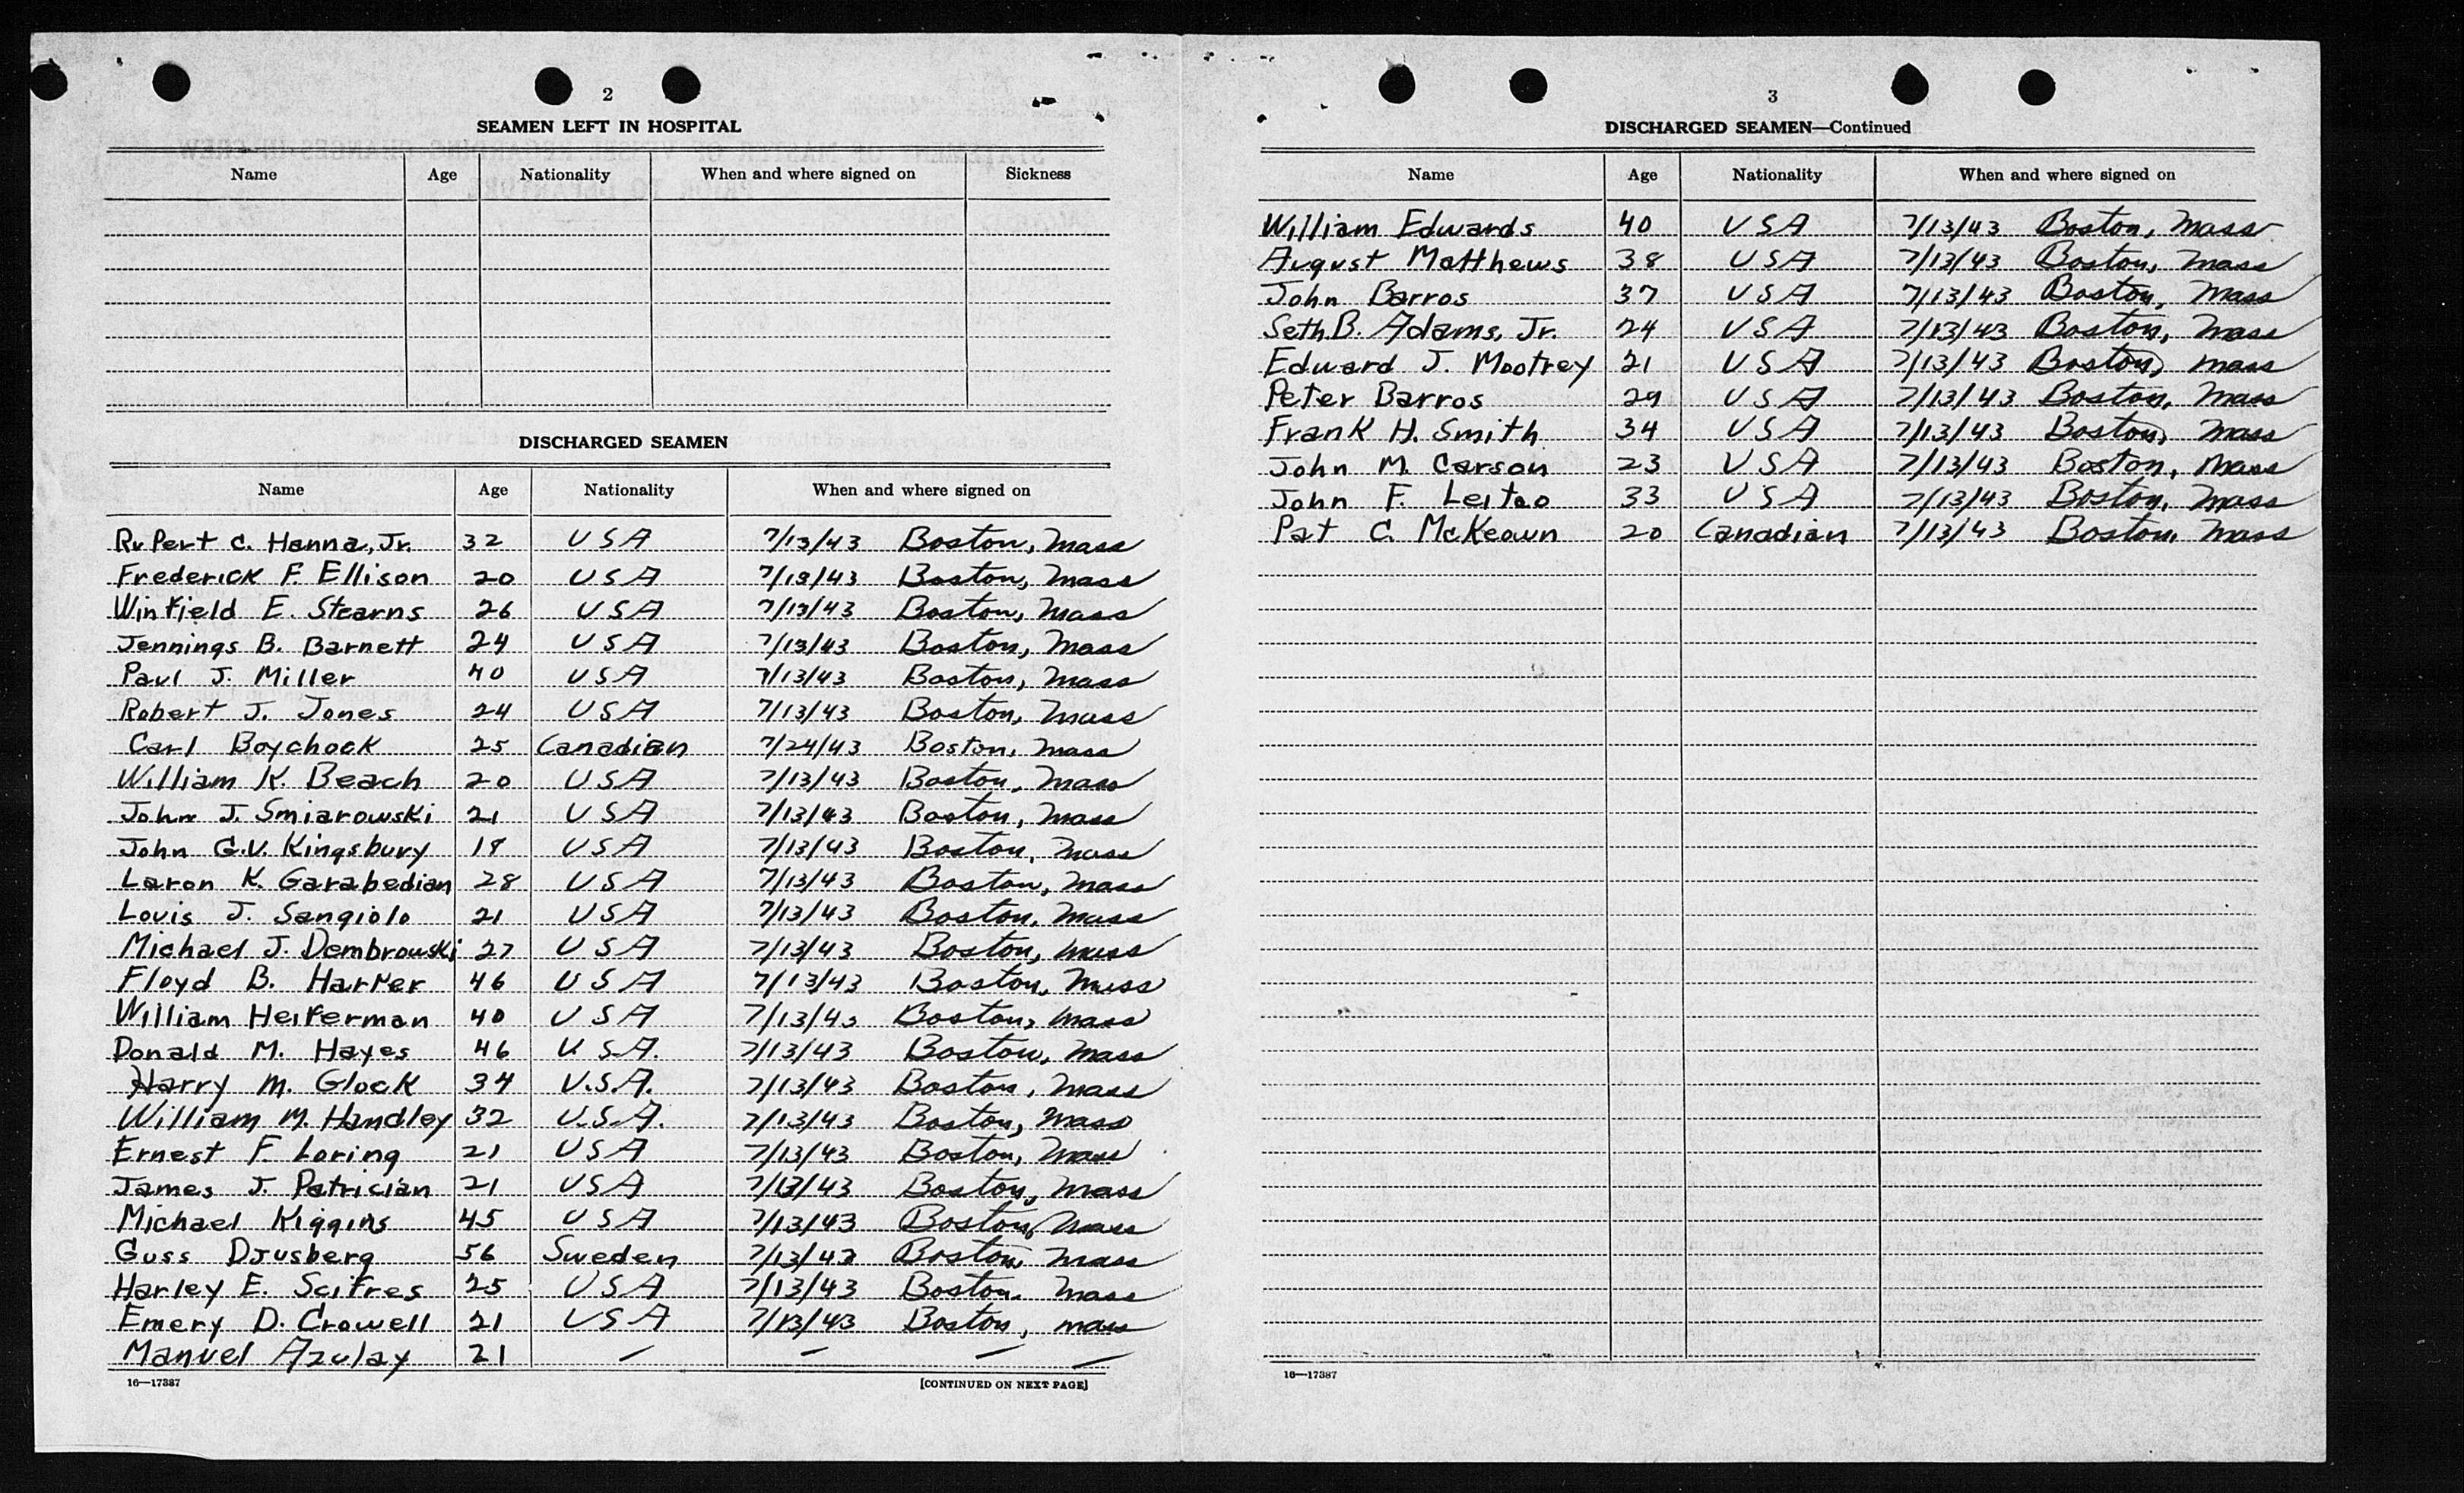 2
SEAMEN LEFT IN HOSPITAL
Name Age Nationality When and where signed on Sickness
DISCHARGED SEAMEN
Name Age Nationality When and where signed on
RuPert C. Hanna, Jr. 32 USA 7/13/43 Boston, Mass
Frederick F. Ellison 20 USA 7/13/43 Boston, Mass
Winfield E. Stearns 26 USA 7/13/43 Boston, Mass
Jennings B. Barnett 24 USA 7/13/43 Boston, Mass
Paul J. Miller 40 USA 7/13/43 Boston, Mass
Robert J. Jones 24 USA 7/13/43 Boston, Mass
Carl Boychock 25 Canadian 7/24/43 Boston, Mass
William K. Beach 20 USA 7/13/43 Boston, Mass
John J. Smiarowski 21 USA 7/13/43 Boston, Mass
John G.V. Kingsbury 18 USA 7/13/43 Boston, Mass
Laron K. Garabedian 28 USA 7/13/43 Boston, Mass
Louis J. Sangiolo 21 USA 7/13/43 Boston, Mass
Michael J. Dembrowski 27 USA 7/13/43 Boston, Mass
Floyd B. HarPer 46 USA 7/13/43 Boston, Mass
William Heiferman 40 USA 7/13/43 Boston, Mass
Donald M. Hayes 46 U.S.A. 7/13/43 Boston, Mass
Harry M. Glock 34 U.S.A. 7/13/43 Boston, Mass
William M. Handley 32 U.S.A. 7/13/43 Boston, Mass
Ernest F. Loring 21 USA 7/13/43 Boston, Mass
James J. Patrician 21 USA 7/13/43 Boston, Mass
Michael Kiggins 45 USA 7/13/43 Boston, Mass
Guss Djusberg 56 Sweden 7/13/43 Boston, Mass
Harley E. Scifres 25 USA 7/13/43 Boston, Mass
Emery D. Crowell 21 USA 7/13/43 Boston, Mass
Manuel Azulay 21 — — — —
16—17387 [CONTINUED ON NEXT PAGE]
3
DISCHARGED SEAMEN—Continued
Name Age Nationality When and where signed on
William Edwards 40 USA 7/13/43 Boston, Mass
August Matthews 38 USA 7/13/43 Boston, Mass
John Barros 37 USA 7/13/43 Boston, Mass
Seth B. Adams, Jr. 24 USA 7/13/43 Boston, Mass
Edward J. Mootrey 21 USA 7/13/43 Boston, Mass
Peter Barros 29 USA 7/13/43 Boston, Mass
Frank H. Smith 34 USA 7/13/43 Boston, Mass
John M. Carson 23 USA 7/13/43 Boston, Mass
John F. Leitao 33 USA 7/13/43 Boston, Mass
Pat C. McKeown 20 Canadian 7/13/43 Boston, Mass
16—17387